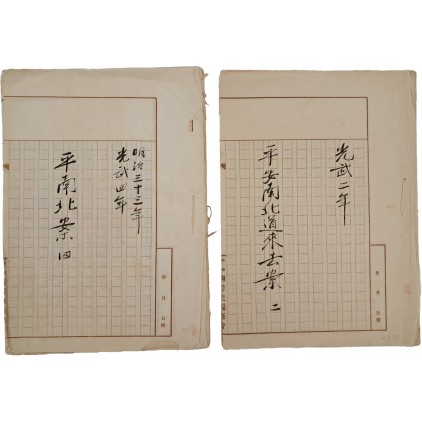 明治三十三年
光武四年
平南北案 四
光武二年
平安南北道來去案 二